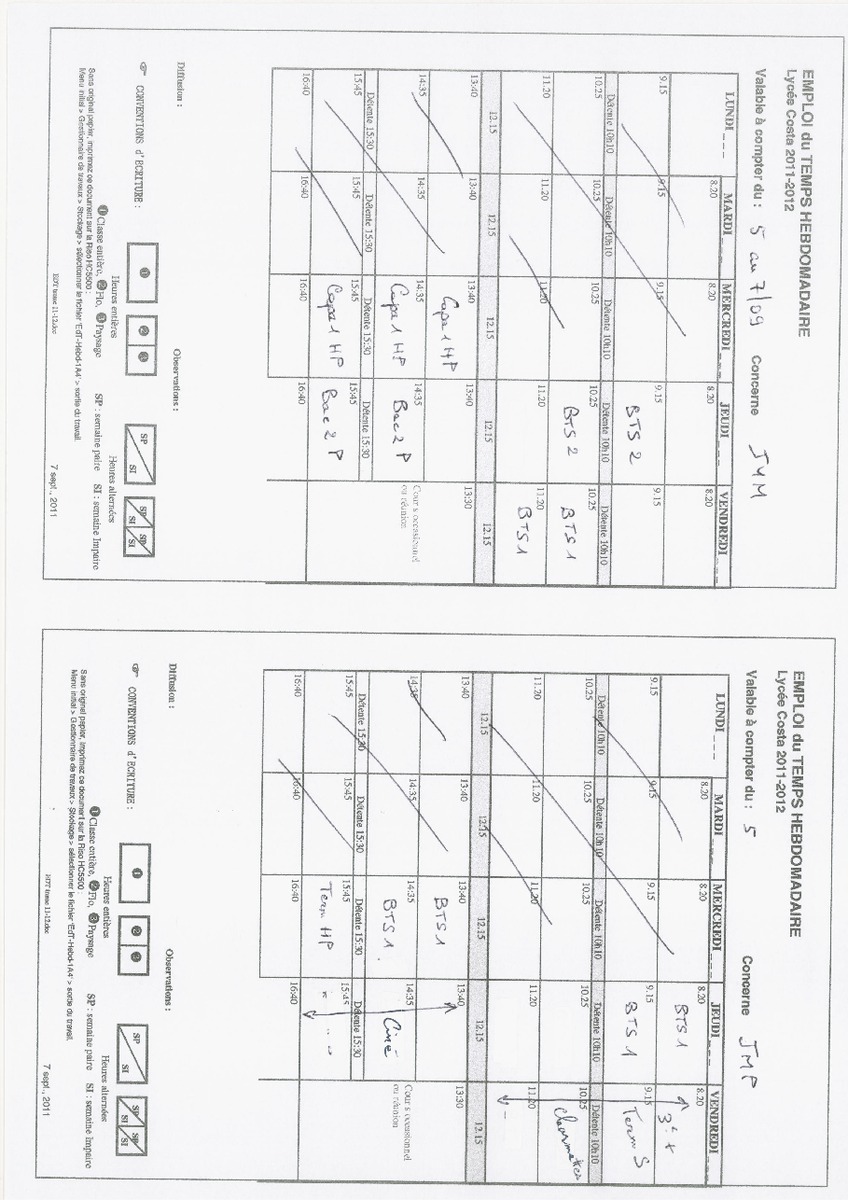 EMPLOI du TEMPS HEBDOMADAIRE
Lycée Costa 2011-2012
Valable à compter du : 5 au 7/09 Concerne JYM
LUNDI _ _ _ MARDI _ _ _ MERCREDI _ _ _ JEUDI _ _ _ VENDREDI _ _ _
8.20 8.20 8.20 8.20
9.15 9.15 9.15 9.15 9.15
BTS 2
Détente 10h10 Détente 10h10 Détente 10h10 Détente 10h10 Détente 10h10
10.25 10.25 10.25 10.25 10.25
BTS 2 BTS 1
11.20 11.20 11.20 11.20 11.20
BTS 1
12.15 12.15 12.15 12.15 12.15
13:40 13:40 13:40 13:40 13:30
Capa 1 HP
14:35 14:35 14:35 14:35 Cours occasionnel
ou réunion
Capa 1 HP Bac 2 P
Détente 15:30 Détente 15:30 Détente 15:30 Détente 15:30
15:45 15:45 15:45 15:45
Capa 1 HP Bac 2 P
16:40 16:40 16:40 16:40
Diffusion : Observations :
☞ CONVENTIONS d'ECRITURE :
Heures entières Heures alternées
❶ ❷ ❸ SP SI SP SI SP SI
❶Classe entière, ❷Flo, ❸Paysage SP : semaine paire SI : semaine Impaire
Sans original papier, imprimez ce document sur la Riso HC5500 :
Menu initial > Gestionnaire de travaux > Stockage > sélectionner le fichier 'EdT-Hebd-1A4' > sortie du travail.
EDT trame 11-12.doc 7 sept., 2011
EMPLOI du TEMPS HEBDOMADAIRE
Lycée Costa 2011-2012
Valable à compter du : 5 Concerne JMP
LUNDI _ _ _ MARDI _ _ _ MERCREDI _ _ _ JEUDI _ _ _ VENDREDI _ _ _
8.20 8.20 8.20 8.20
BTS 1
9.15 9.15 9.15 9.15 9.15
BTS 1 Term S
Détente 10h10 Détente 10h10 Détente 10h10 Détente 10h10 Détente 10h10
10.25 10.25 10.25 10.25 10.25
11.20 11.20 11.20 11.20 11.20
12.15 12.15 12.15 12.15 12.15
13:40 13:40 13:40 13:40 13:30
BTS 1
14:35 14:35 14:35 14:35 Cours occasionnel
ou réunion
BTS 1. Ciné
Détente 15:30 Détente 15:30 Détente 15:30 Détente 15:30
15:45 15:45 15:45 15:45
Term HP
16:40 16:40 16:40 16:40
Diffusion : Observations :
☞ CONVENTIONS d'ECRITURE :
Heures entières Heures alternées
❶ ❷ ❸ SP SI SP SI SP SI
❶Classe entière, ❷Flo, ❸Paysage SP : semaine paire SI : semaine Impaire
Sans original papier, imprimez ce document sur la Riso HC5500 :
Menu initial > Gestionnaire de travaux > Stockage > sélectionner le fichier 'EdT-Hebd-1A4' > sortie du travail.
EDT trame 11-12.doc 7 sept., 2011